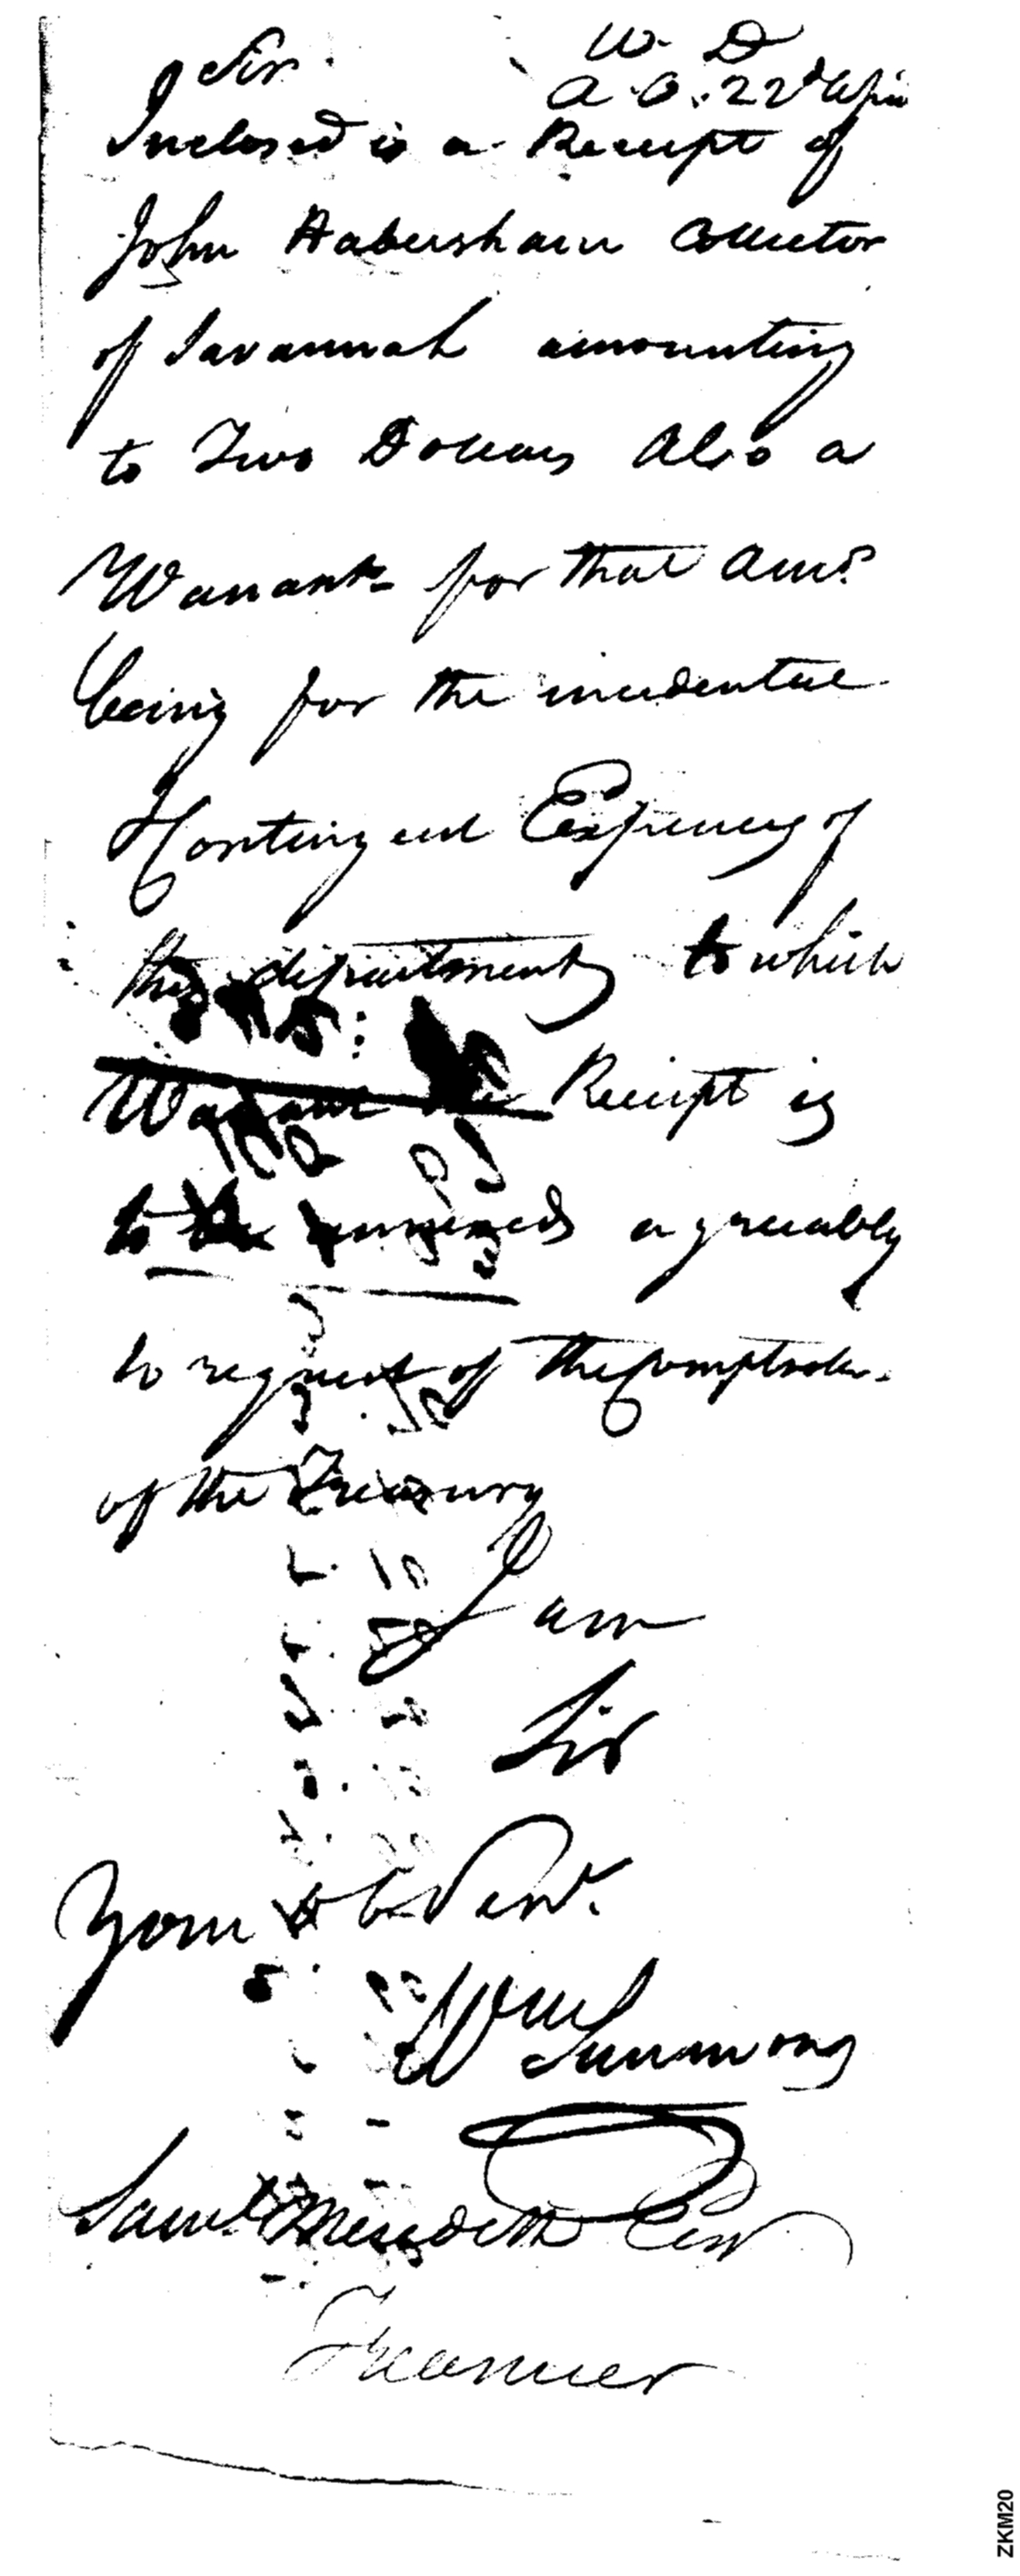 W. D
Sir A. O. 22d Apri
Inclosed is a Receipt of
John Habersham Collector
of Savannah amounting
to Two Dollars Also a
Warrant for that Amt.
being for the incidental
Contingent Expences of
the department to which
Warrant the Receipt is
to be annexed agreeably
to request of the Comptroler
of the Treasury
I am
Sir
Your Ob. Servt.
Wm Simmons
Saml. Meredith Esqr
Treasurer
ZKM20